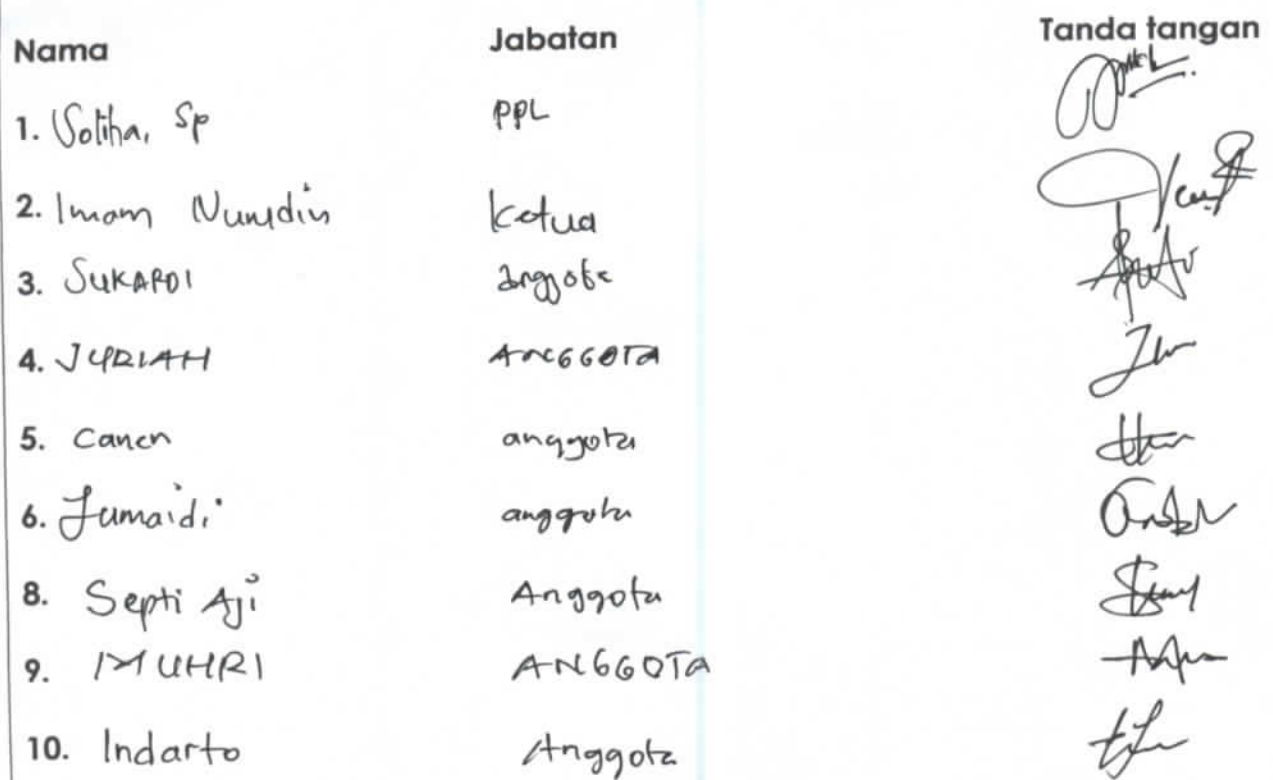 Nama Jabatan Tanda tangan
1. Soliha, SP PPL
2. Imam Nurudin Ketua
3. SUKARDI anggota
4. JURIAH ANGGOTA
5. Canen anggota
6. Jumaidi anggota
8. Septi Aji Anggota
9. MUHRI ANGGOTA
10. Indarto Anggota